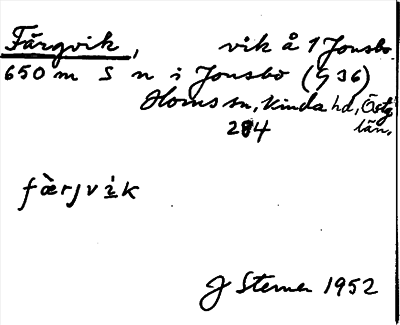 Färgvik, vik å 1 Jonsbo.
650 m S n i Jonsbo (G 36)
Horns sn, Kinda hd, Östg.
284 län.
fæ̀rjvik
J Sterner 1952